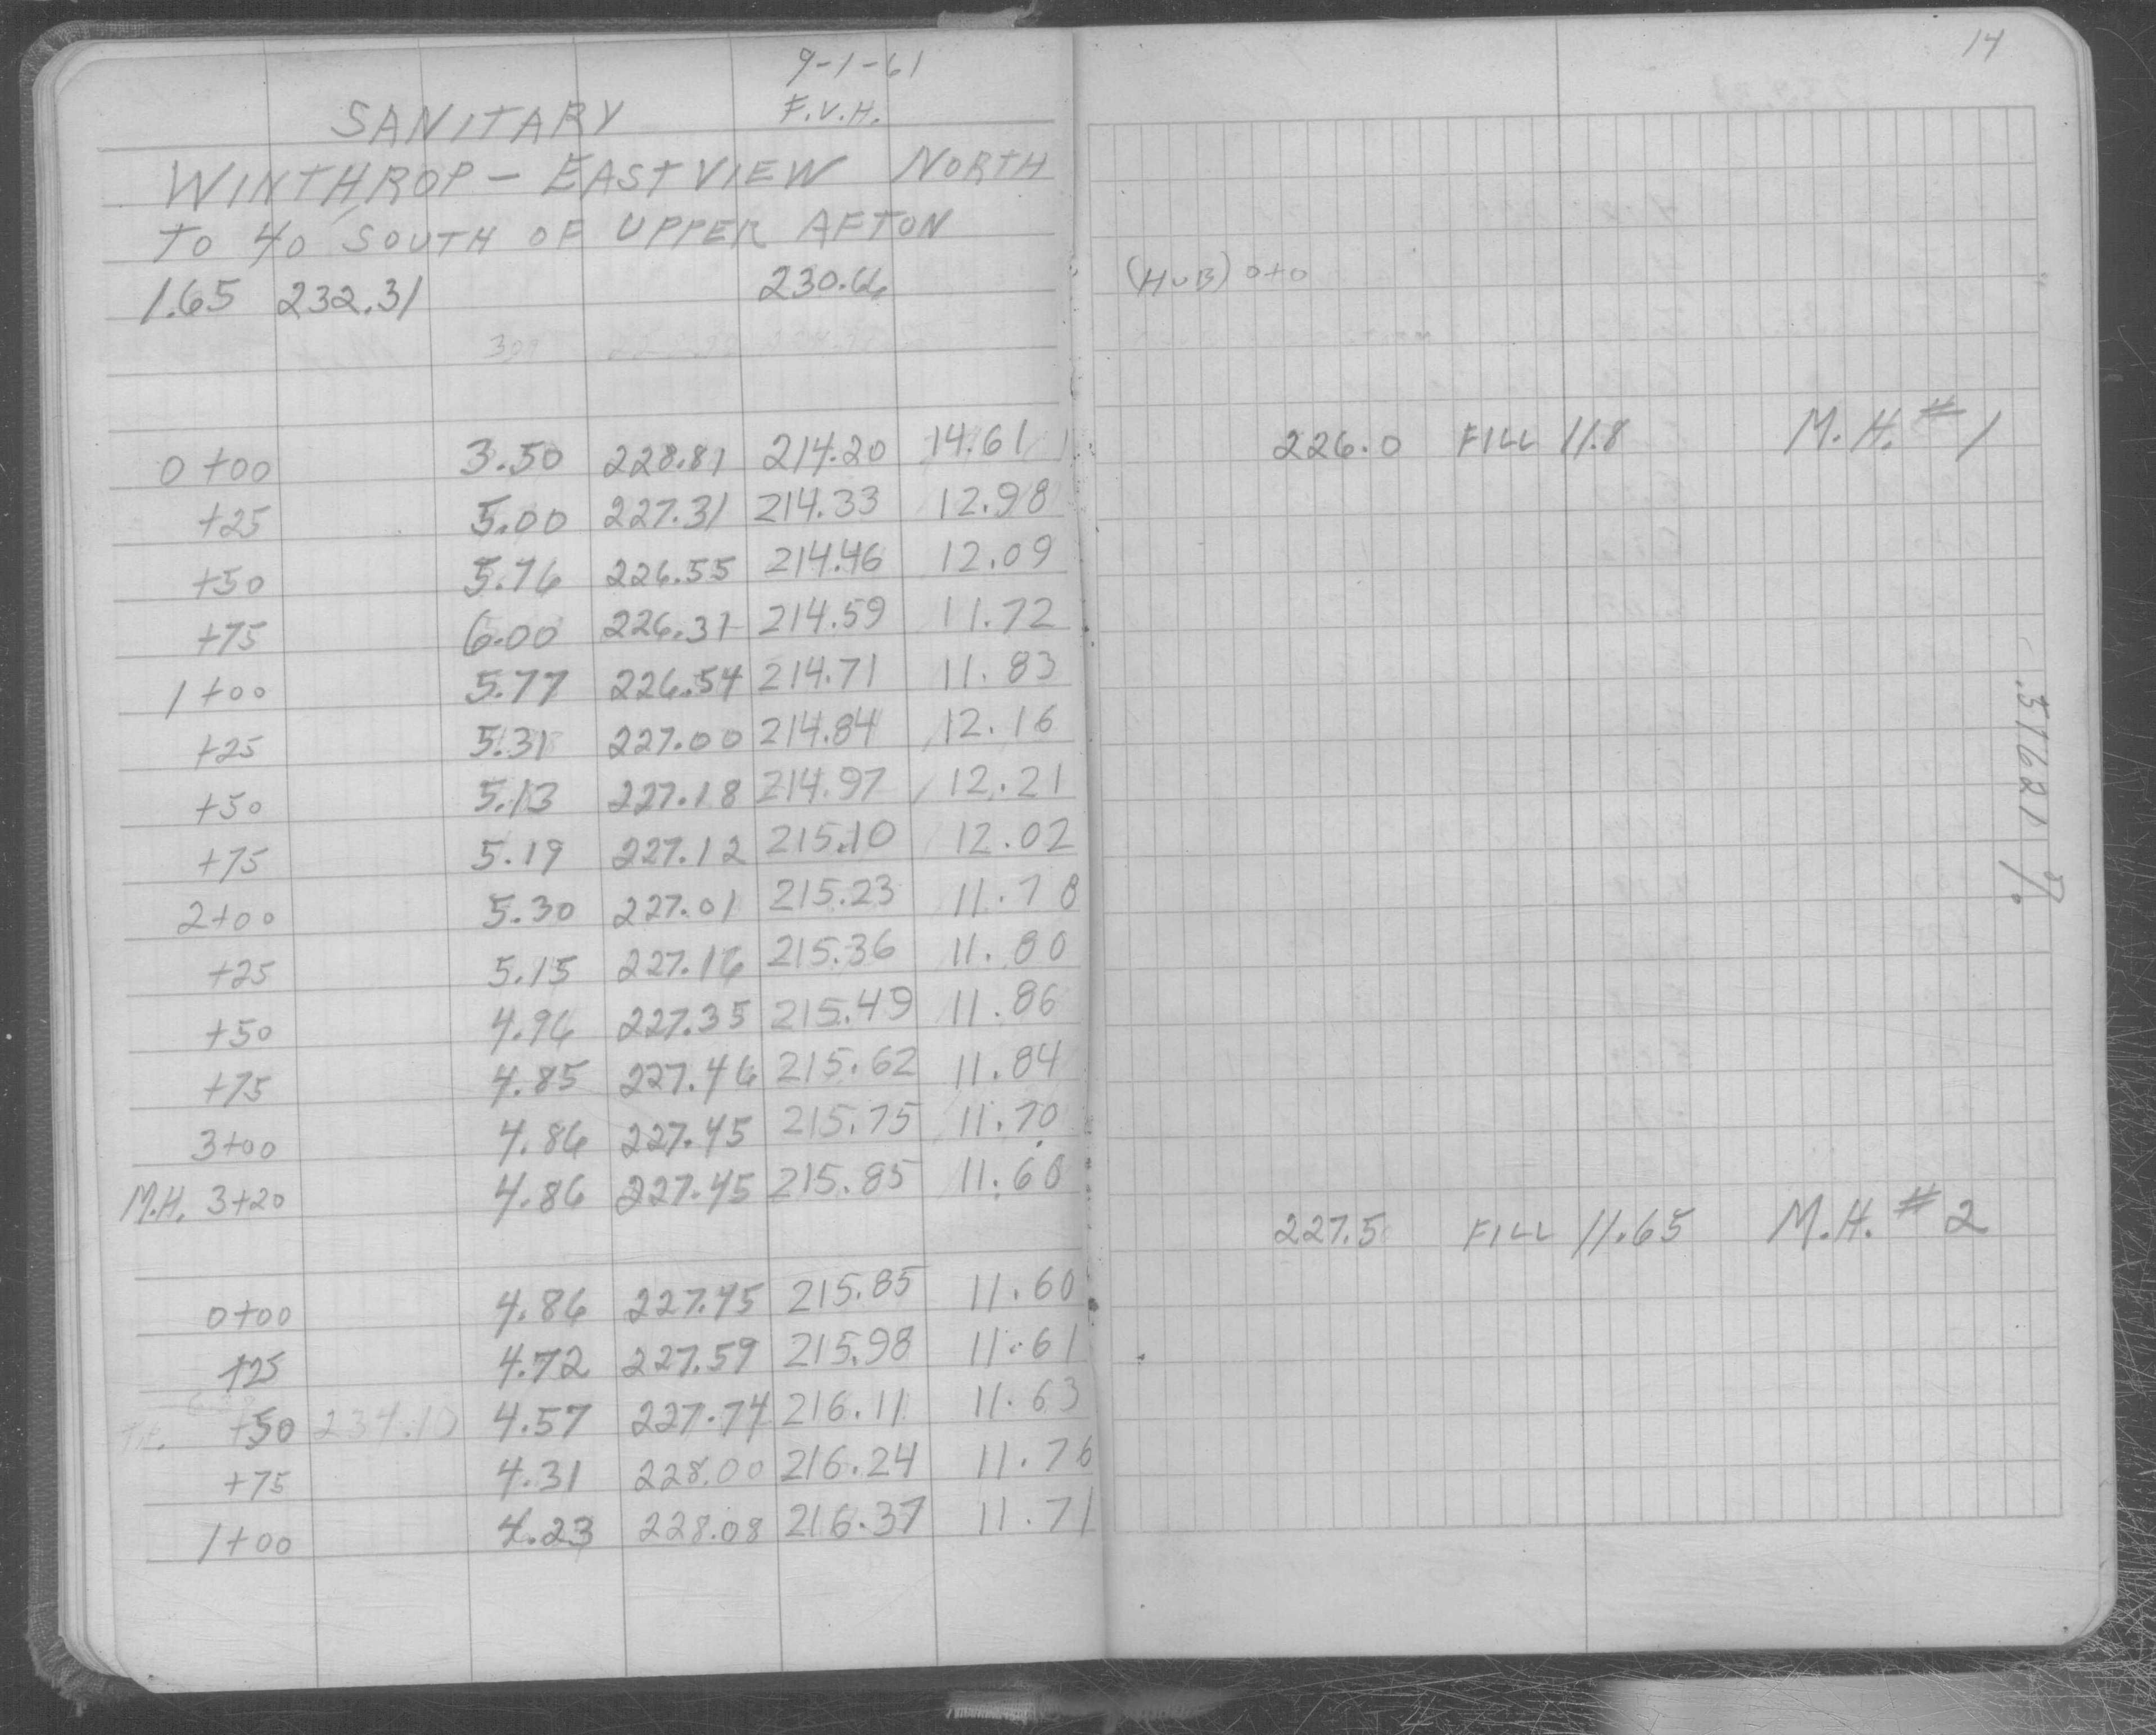 9-1-61
SANITARY F.V.H.
WINTHROP - EASTVIEW NORTH
TO 40' SOUTH OF UPPER AFTON
1.65 232.31 230.66
0+00 3.50 228.81 214.20 14.61
+25 5.00 227.31 214.33 12.98
+50 5.76 226.55 214.46 12.09
+75 6.00 226.31 214.59 11.72
1+00 5.77 226.54 214.71 11.83
+25 5.31 227.00 214.84 12.16
+50 5.13 227.18 214.97 12.21
+75 5.19 227.12 215.10 12.02
2+00 5.30 227.01 215.23 11.78
+25 5.15 227.16 215.36 11.80
+50 4.96 227.35 215.49 11.86
+75 4.85 227.46 215.62 11.84
3+00 4.86 227.45 215.75 11.70
M.H. 3+20 4.86 227.45 215.85 11.60
0+00 4.86 227.45 215.85 11.60
+25 4.72 227.59 215.98 11.61
+50 234.10 4.57 227.74 216.11 11.63
+75 4.31 228.00 216.24 11.76
1+00 4.23 228.08 216.37 11.71
14
(HUB) 0+0
226.0 FILL 11.8 M.H. # 1
.51621 %
227.5 FILL 11.65 M.H. # 2